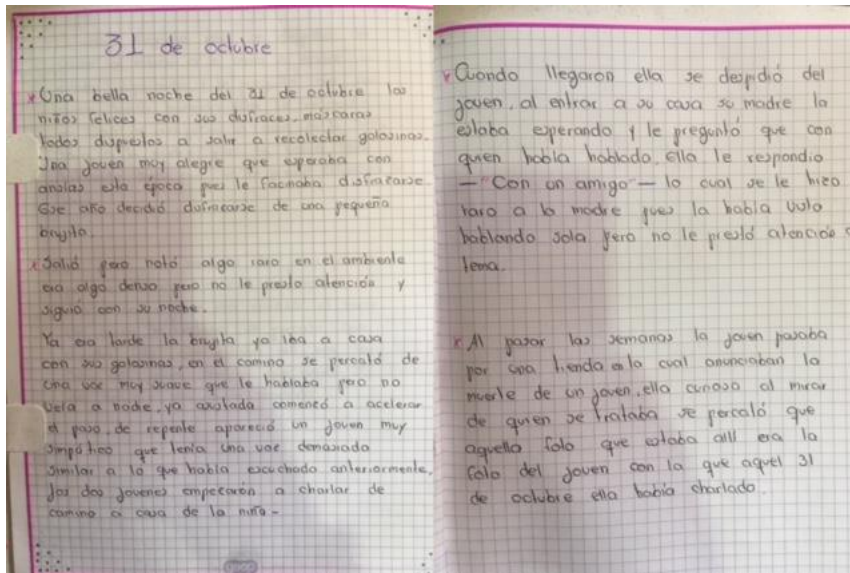 31 de octubre
Una bella noche del 31 de octubre los
niños felices con sus disfraces, máscaras
todos dispuestos a salir a recolectar golosinas.
Una joven muy alegre que esperaba con
ansias esta época pues le facinaba disfrazarse
Ese año decidió disfrazarse de una pequeña
brujita.
Salió pero notó algo raro en el ambiente
era algo denso pero no le presto atención y
siguió con su noche.
Ya era tarde la brujita ya iba a casa
con sus golosinas, en el camino se percató de
una voz muy suave que le hablaba pero no
veía a nadie, ya asustada comenzó a acelerar
el paso, de repente apareció un joven muy
simpático que tenía una voz demasiada
similar a la que había escuchado anteriormente,
los dos jovenes empezaron a charlar de
camino a casa de la niña-
Cuando llegaron ella se despidió del
joven, al entrar a su casa su madre la
estaba esperando y le preguntó que con
quien había hablado, ella le respondio
—"Con un amigo"— lo cual se le hizo
raro a la madre pues la había visto
hablando sola pero no le prestó atención
tema.
Al pasar las semanas la joven pasaba
por una tienda en la cual anunciaban la
muerte de un joven, ella curiosa al mirar
de quien se trataba se percató que
aquella foto que estaba allí era la
foto del joven con la que aquel 31
de octubre ella había charlado.